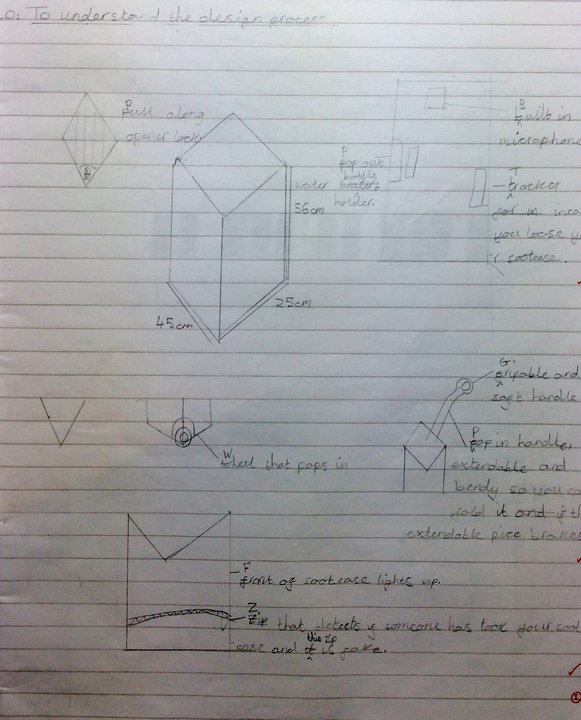 .O: To understand the design process
Pull along
opener lock
Built in
microphone
Pop out
bottle
water waters
holder.
Tracker
for in
you loose y
sootcase.
56cm
25cm
45cm
Gripable and
soft handle
Wheel that pops in
Pop in handle,
extendable and
bendy so you c
fold it and if th
extendable pice brakes
Front of sootcase lights up.
Z.
Zip that detects if someone has took your soot
this zip
case and it is fake.